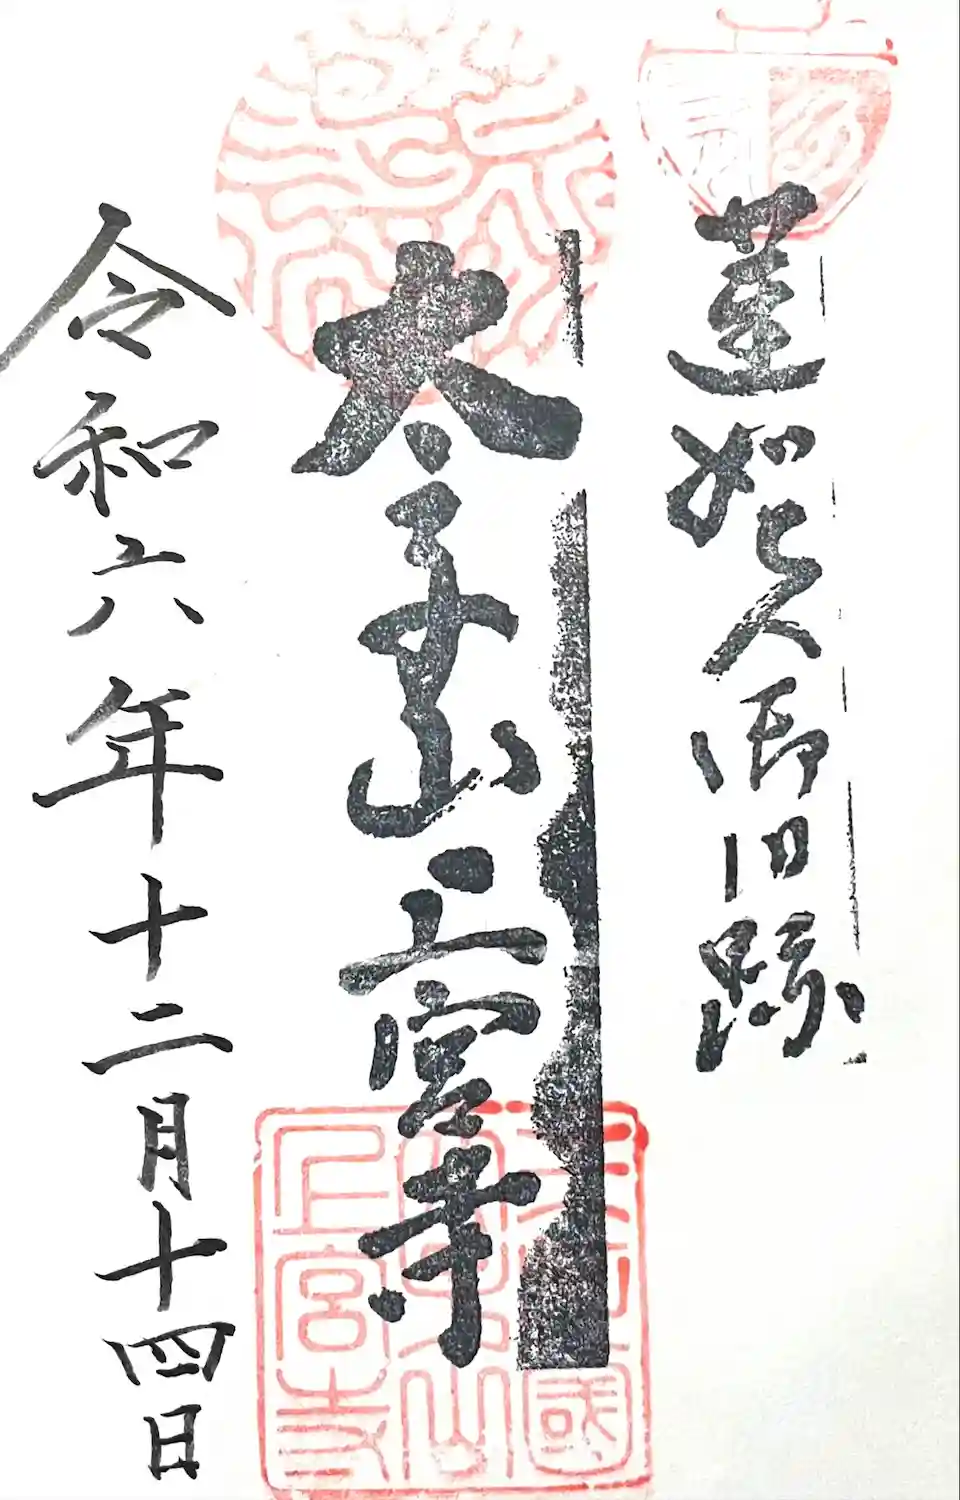 蓮如上人御旧跡
太子山上宮寺
令和六年十二月十四日
國
山
上宮寺